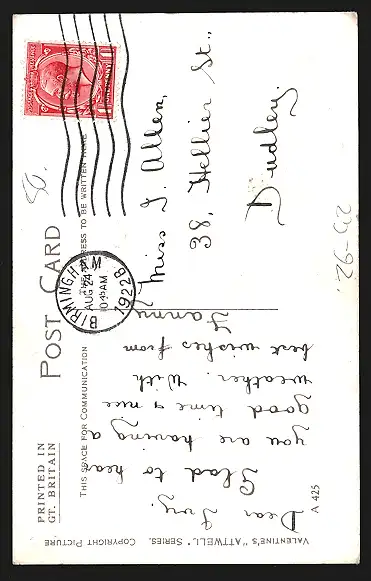 POST CARD
PRINTED IN
GT. BRITAIN
THIS SPACE FOR COMMUNICATION
THE ADDRESS TO BE WRITTEN HERE
BIRMINGHAM
AUG 24
1922
Dear Ivy.
Glad to hear
you are having a
good time & nice
weather. With
best wishes from
Fanny
Miss I. Allen,
38, Hellier St.,
Dudley.
VALENTINE'S "ATTWELL" SERIES. COPYRIGHT PICTURE
A 425